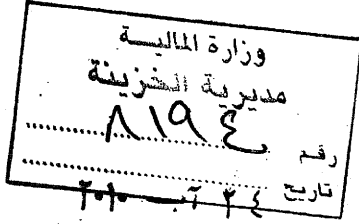 وزارة المالية
مديرية الخزينة
رقم ٨١٩٤
تاريخ ٢٤ آب ٢٠١٠